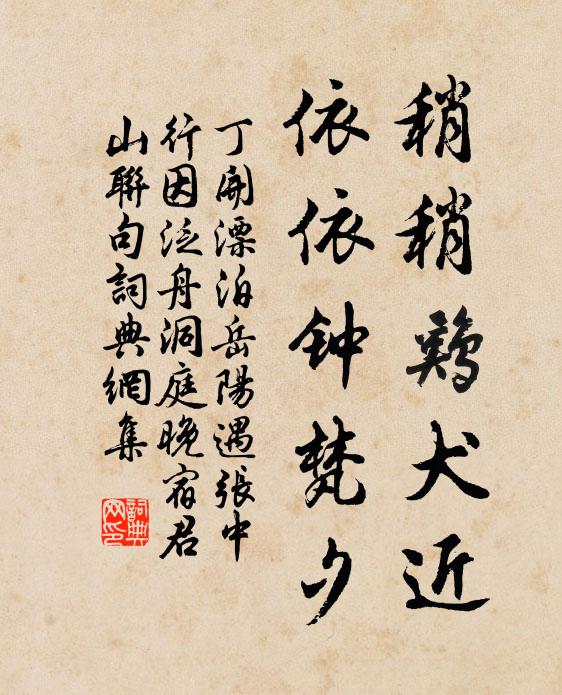 稍稍鷄犬近
依依钟梵夕
丁開漂泊岳陽遇張中
行因泛舟洞庭晚宿君
山聯句詞典網集
詞典网印